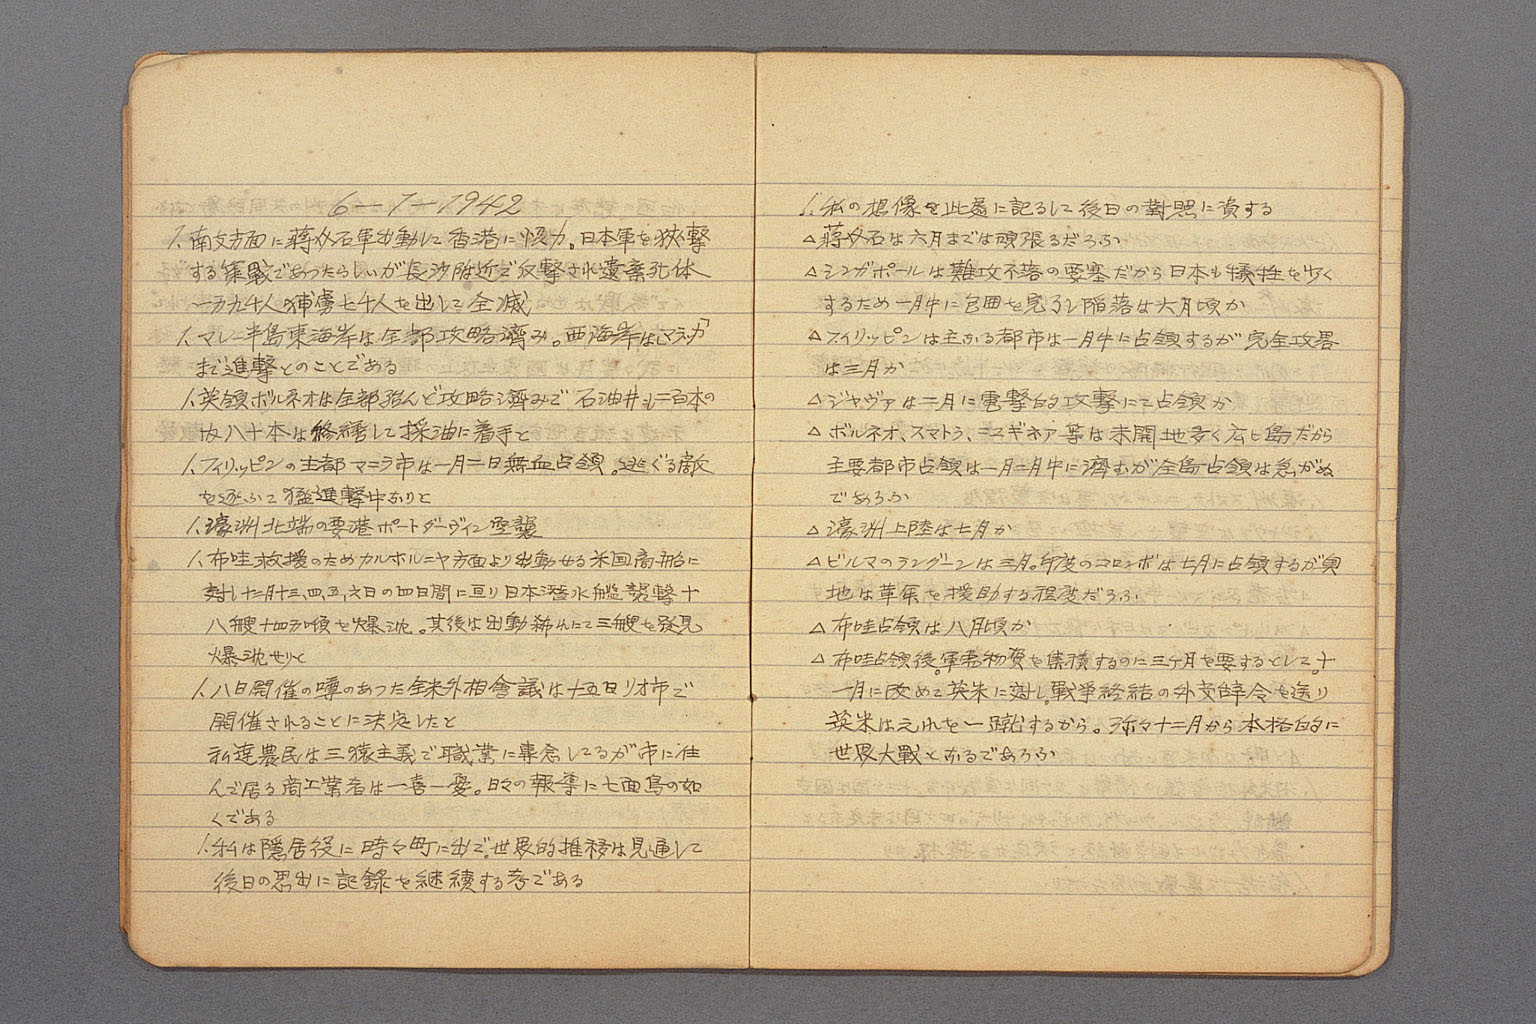 6-1-1942
1. 南支方面に蒋介石軍出動して香港に協力。日本軍を狭撃
する策戰であつたらしいが長沙附近で反撃され遺棄死体
一万九千人 捕虜七千人を出して全滅
1. マレー半島東海岸は全部攻略濟み。西海岸は「マラッカ」
まで進撃とのことである
1. 英領ボルネオは全部殆んど攻略濟みで 石油井も二百本の
内八十本は修繕して採油に着手と
1. フィリッピンの主都マニラ市は一月二日無血占領。逃ぐる敵
を逐ふて猛進撃中なりと
1. 濠洲北端の要港ポートダーヴィン空襲
1. 布哇救援のためカルホルニヤ方面より出動せる米国商船に
対し十二月十三、四、五、六日の四日間に亘り日本潜水艦襲撃十
八艘十四万噸を爆沈。其後は出動稀れにて三艘を発見
爆沈せりと
1. 八日開催の噂のあつた全米外相會議は十五日リオ市で
開催されることに決定したと
私達農民は三猿主義で職業に専念してるが市に住
んで居る商工業者は一喜一憂。日々の報導に七面鳥の如
くである
1. 私は隠居役に時々町に出で。世界的推移は見通して
後日の思出に記録を継続する考である
1. 私の想像を此處に記るして後日の對照に資する
△ 蒋介石は六月までは頑張るだろふ
△ シンガポールは難攻不落の要塞だから日本も犠牲を少く
するため一月中に包囲を完了し陥落は六月頃か
△ フィリッピンは主なる都市は一月中に占領するが完全攻畧
は三月か
△ ジャヴァは二月に電撃的攻撃にて占領か
△ ボルネオ、スマトラ、ニユギネア等は未開地多く広い島だから
主要都市占領は一月二月中に濟むが全島占領は急がぬ
であろふ
△ 濠洲上陸は七月か
△ ビルマのラングーンは三月。印度のコロンボは七月に占領するが奥
地は革命を援助する程度だろふ
△ 布哇占領は八月頃か
△ 布哇占領後軍需物資を集積するのに三ヶ月を要するとして十
一月に改めて英米に対し戦争終結の外交辞令を送り
英米は之れを一蹴するから。弥々十二月から本格的に
世界大戰となるであろふ